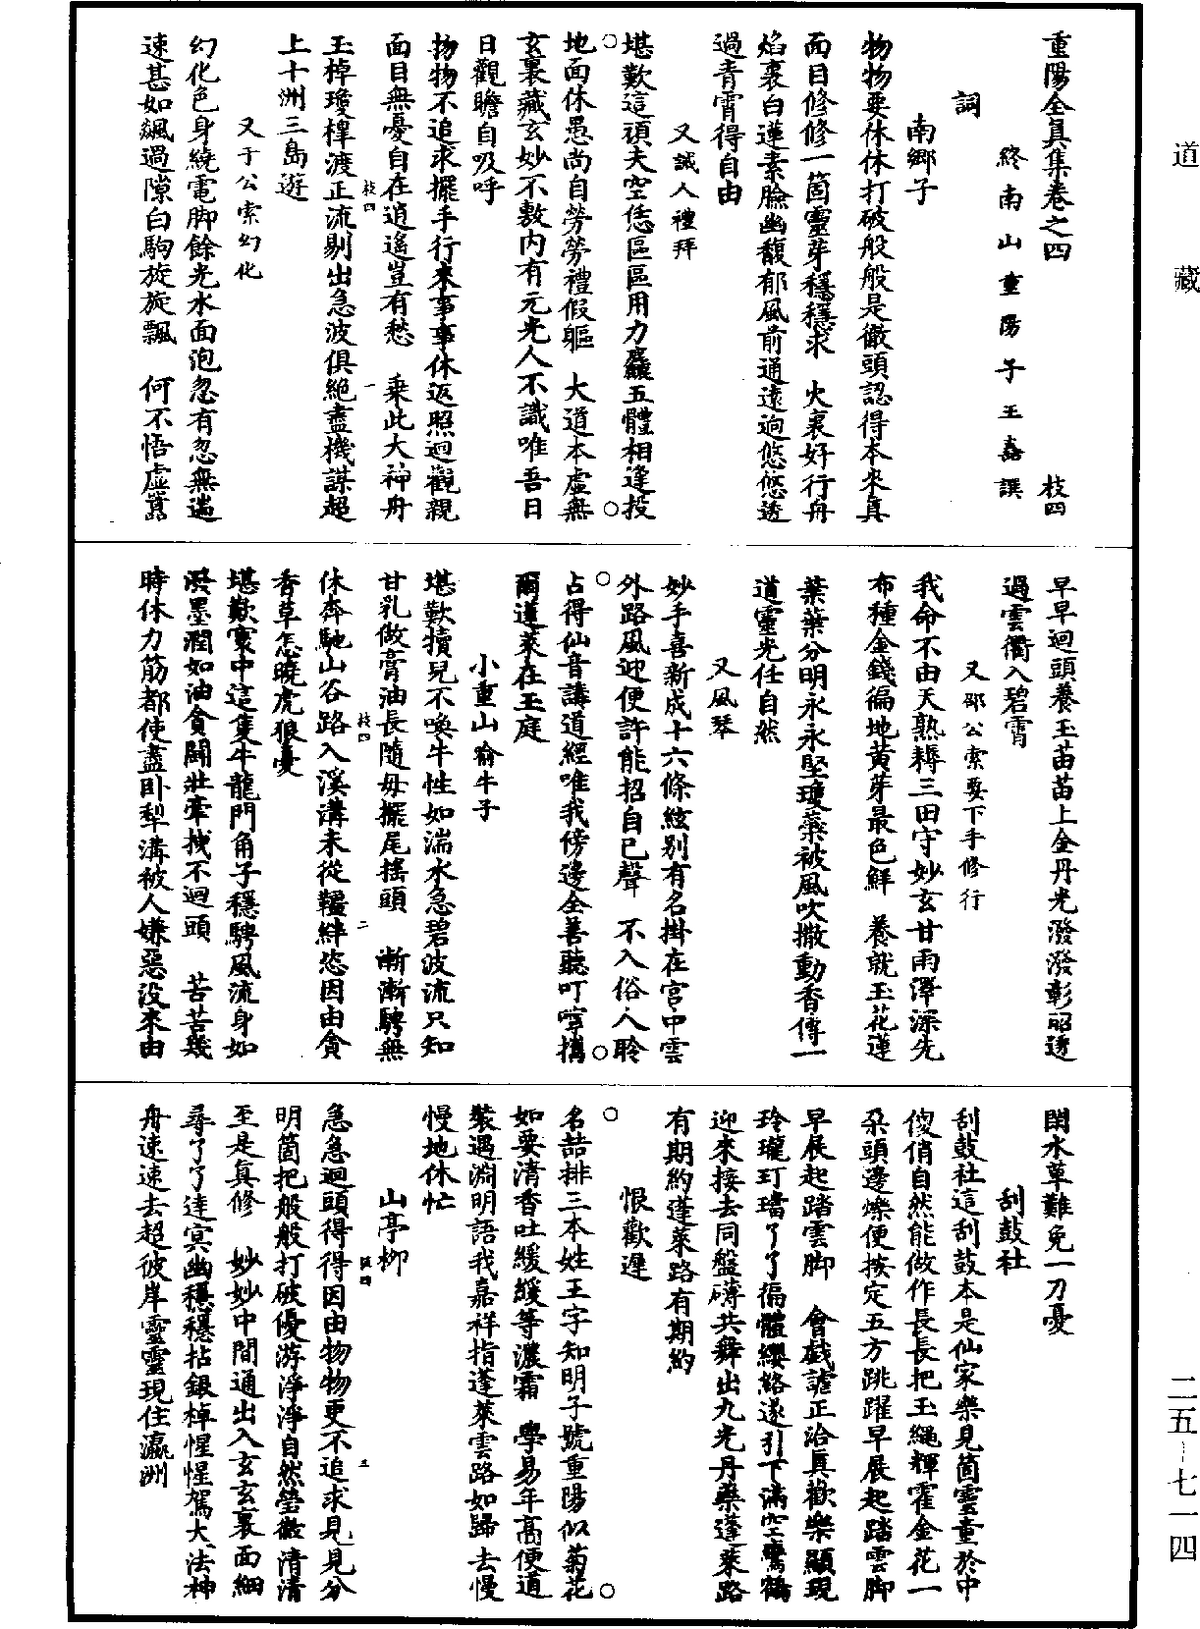 道藏
重陽全真集卷之四　枝四
終南山重陽子王嚞譔
詞
南鄉子
物物要休休打破般般是徹頭認得本來真
面目修修一箇靈芽穩穩求　火裏好行舟
焰裏白蓮素臉幽馥郁風前通遠迥悠悠透
過青霄得自由
又誡人禮拜
堪歎這頑夫空恁區區用力麤五體相逢投
地面休愚尚自勞勞禮假軀　大道本虛無
玄裏藏玄妙不敷内有元光人不識唯吾日
日觀瞻自吸呼
物物不追求擺手行來事事休返照迴觀親
面目無憂自在逍遙豈有愁　乘此大神舟
枝四　一
玉棹瓊橰渡正流剔出急波俱絶盡機謀超
上十洲三島遊
又于公索幻化
幻化色身繞電脚餘光水面泡忽有忽無遄
速甚如飆過隙白駒旋旋飄　何不悟虛囂
早早迴頭養玉苗苗上金丹光潑潑彰昭透
過雲衢入碧霄
又邵公索要下手修行
我命不由天熟耨三田守妙玄甘雨澤深先
布種金錢徧地黄芽最色鮮　養就玉花蓮
葉葉分明永永堅瓊藥被風吹撒動香傳一
道靈光任自然
又風琴
妙手喜新成十六條絃别有名掛在宫中雲
外路風迎便許能招自已聲　不入俗人聆
占得仙音講道經唯我傍邊全善聽叮嚀搆
爾蓬萊在玉庭
小重山喻牛子
堪歎犢兒不喚牛性如湍水急碧波流只知
甘乳做膏油長隨母擺尾搖頭　漸漸騁無
枝四　二
休奔馳山谷路入溪溝未從韁絆恣因由貪
香草怎曉虎狼憂
堪歎寰中這隻牛龍門角子穩騁風流身如
潑墨潤如油貪鬭壯牽拽不迴頭　苦苦幾
時休力筋都使盡卧犁溝被人嫌惡没來由
閑水草難免一刀憂
刮鼓社
刮鼓社這刮鼓本是仙家樂見箇靈童於中
傻俏自然能做作長長把玉繩輝霍金花一
朶頭邊爍便按定五方跳躍早展起踏雲脚
早展起踏雲脚　會戱謔正洽真歡樂顯現
玲瓏玎璫了了徧體纓絡遂引下滿空鸞鶴
迎來接去同盤礴共舞出九光丹藥蓬萊路
有期約蓬萊路有期約
恨歡遲
名喆排三本姓王字知明子號重陽似菊花
如要清香吐緩緩等濃霜　學易年高便道
裝遇淵明語我嘉祥指蓬萊雲路如歸去慢
慢地休忙
山亭柳
急急迴頭得得因由物物更不追求見見分
枝四　三
明箇把般般打破優游淨淨自然瑩徹清清
至是真修　妙妙中間通出入玄玄裏面細
尋了了達冥幽穩穩拈銀棹惺惺駕大法神
舟速速去超彼岸靈靈現住瀛洲
二五－七一四